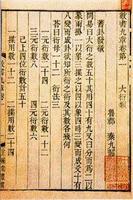 數書九章卷第一 大衍類
魯郡 秦九韶
蓍卦發微
問易曰大衍之數五十其用四十有九又曰分而爲二以
象兩掛一以象三揲之以四以象四時三變而成爻十有
八變而成卦欲知所衍之術及其數各幾何
答曰衍母一十二 衍法三
一元衍數二十四 二元衍數一十二
三元衍數八 四元衍數六
已上四位衍數計五十
一揲用數一十二 二揲用數二十四